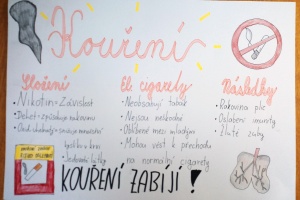 Kouření
Složení
• Nikotin = Závislost
• Dehet = způsobuje rakovinu
• Oxid uhelnatý = snižuje množství
kyslíku v krvi
• Jedovaté látky
El. cigarety
• Neobsahují tabák
• Nejsou neškodné
• Oblíbené mezi mladými
• Mohou vést k přechodu
na normální cigarety
Následky
• Rakovina plic
• Oslabení imunity
• Žluté zuby
KOUŘENÍ ZABÍJÍ!